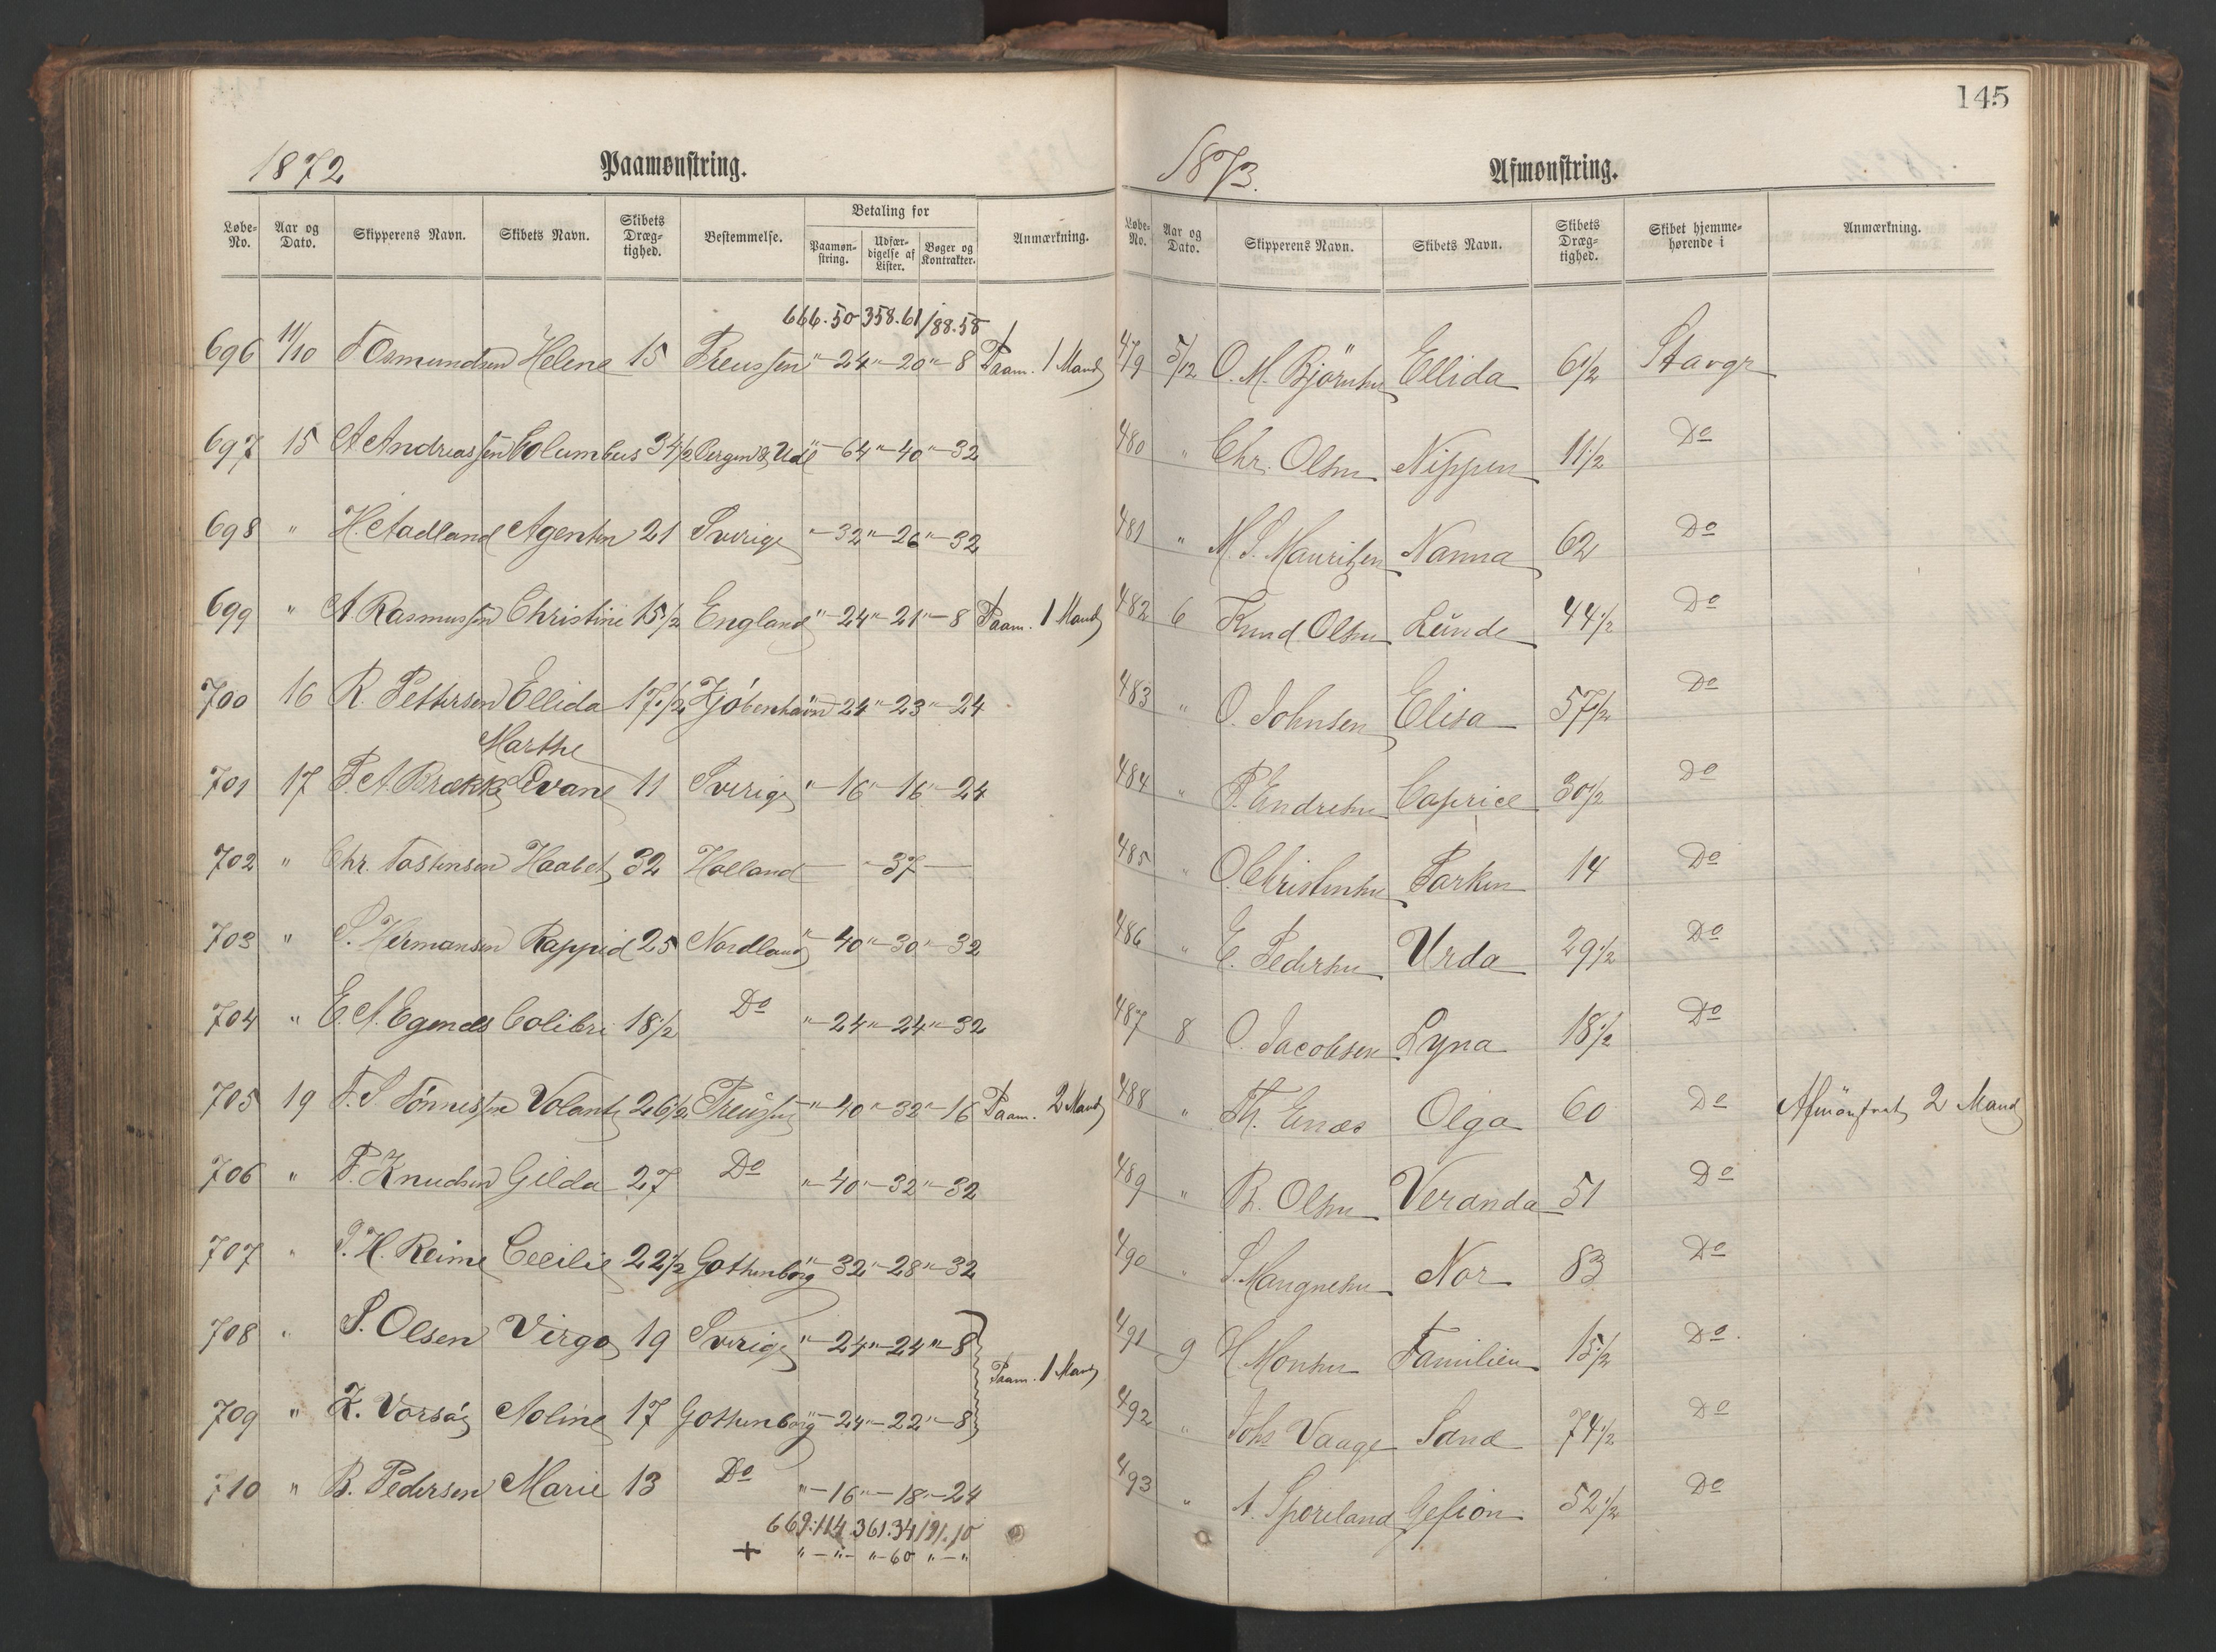 145
1872
Paamønstring.
Løbe-No. Aar og Dato. Skipperens Navn. Skibets Navn. Skibets Dræg-tighed. Bestemmelse. Betaling for Paamøn-string. Udfær-digelse af Lister. Bøger og Kontrakter. Anmærkning.
666.50 358.61 188.58
696 11/10 T. Osmundsen Helene 15 Preussen "-24 "-20 "-8 Paam. 1 Mand
697 15 A Andreassen Columbus 34½ Bergen & Udl "-64 "-40 "-32
698 " H. Aadland Agenten 21 Sverige "-32 "-26 "-32
699 " A. Rasmussen Christine 15½ England "-24 "-21 "-8 Paam. 1 Mand
700 16 R. Pettersen Ellida 17½ Kjöbenhavn "-24 "-23 "-24
Marthe
701 17 T. A. Brække Ovane 11 Sverige "-16 "-16 "-24
702 " Chr. Tostensen Haabet 32 Holland "-37
703 " S. Hermansen Rappid 25 Nordland "-40 "-30 "-32
704 " E. A. Egenæs Colibri 18½ Do "-24 "-24 "-32
705 19 T. S. Tönnessen Volante 26½ Preussen "-40 "-32 "-16 Paam. 2 Mand
706 " T. Knudsen Gilda 27 Do "-40 "-32 "-32
707 " P. H. Reime Cecilie 22½ Gothenborg "-32 "-28 "-32
708 " S. Olsen Virgo 19 Sverige "-24 "-24 "-8
Paam. 1 Mand
709 " K. Vorsöe Noline 17 Gothenborg "-24 "-22 "-8
710 " B. Pedersen Marie 13 Do "-16 "-18 "-24
669.114 361.34 191.10
+ "-"- "-60 "-"
1873.
Afmønstring.
Løbe-No. Aar og Dato. Skipperens Navn. Skibets Navn. Skibets Dræg-tighed. Skibet hjemme-hørende i Anmærkning.
479 5/12 O. M. Björnsen Ellida 6½ Stavgr
480 " Chr. Olsen Nippen 11½ Do
481 " M. S. Mauritzen Nanna 62 Do
482 6 Knud Olsen Lunde 44½ Do
483 " O. Johnsen Elisa 57½ Do
484 " P. Endresen Caprice 30½ Do
485 " O. Christensen Parken 14 Do
486 " E. Pedersen Urda 29½ Do
487 8 O. Jacobsen Lyna 18½ Do
488 " Th. Enæs Olga 60 Do Afmönstret 2 Mand
489 " B. Olsen Veranda 51 Do
490 " S. Mangnesen Nor 83 Do
491 9 H. Monsen Familien 15½ Do.
492 " Johs Vaage Sand 74½ Do
493 " A. Sporeland Gefion 52½ Do